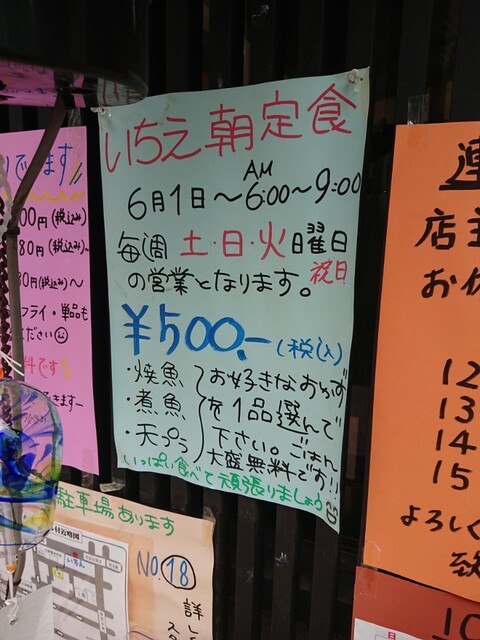 いちえ 朝定食
AM
6月1日～6:00～9:00
毎週 土・日・火曜日
祝日
の営業となります。
¥500.-(税込)
・焼魚
・煮魚
・天プラ
お好きなおかず
を1品選んで
下さい。ごはん
大盛無料です!!
いっぱい食べて頑張りましょう
でます
00円(税込み)
80円(税込み)~
80円(税込み)~
フライ・単品も
ください
料です
きます
駐車場あります
NO.⑱
詳し
連
店主
お休
12
13
14
15
よろしく
致
10
日